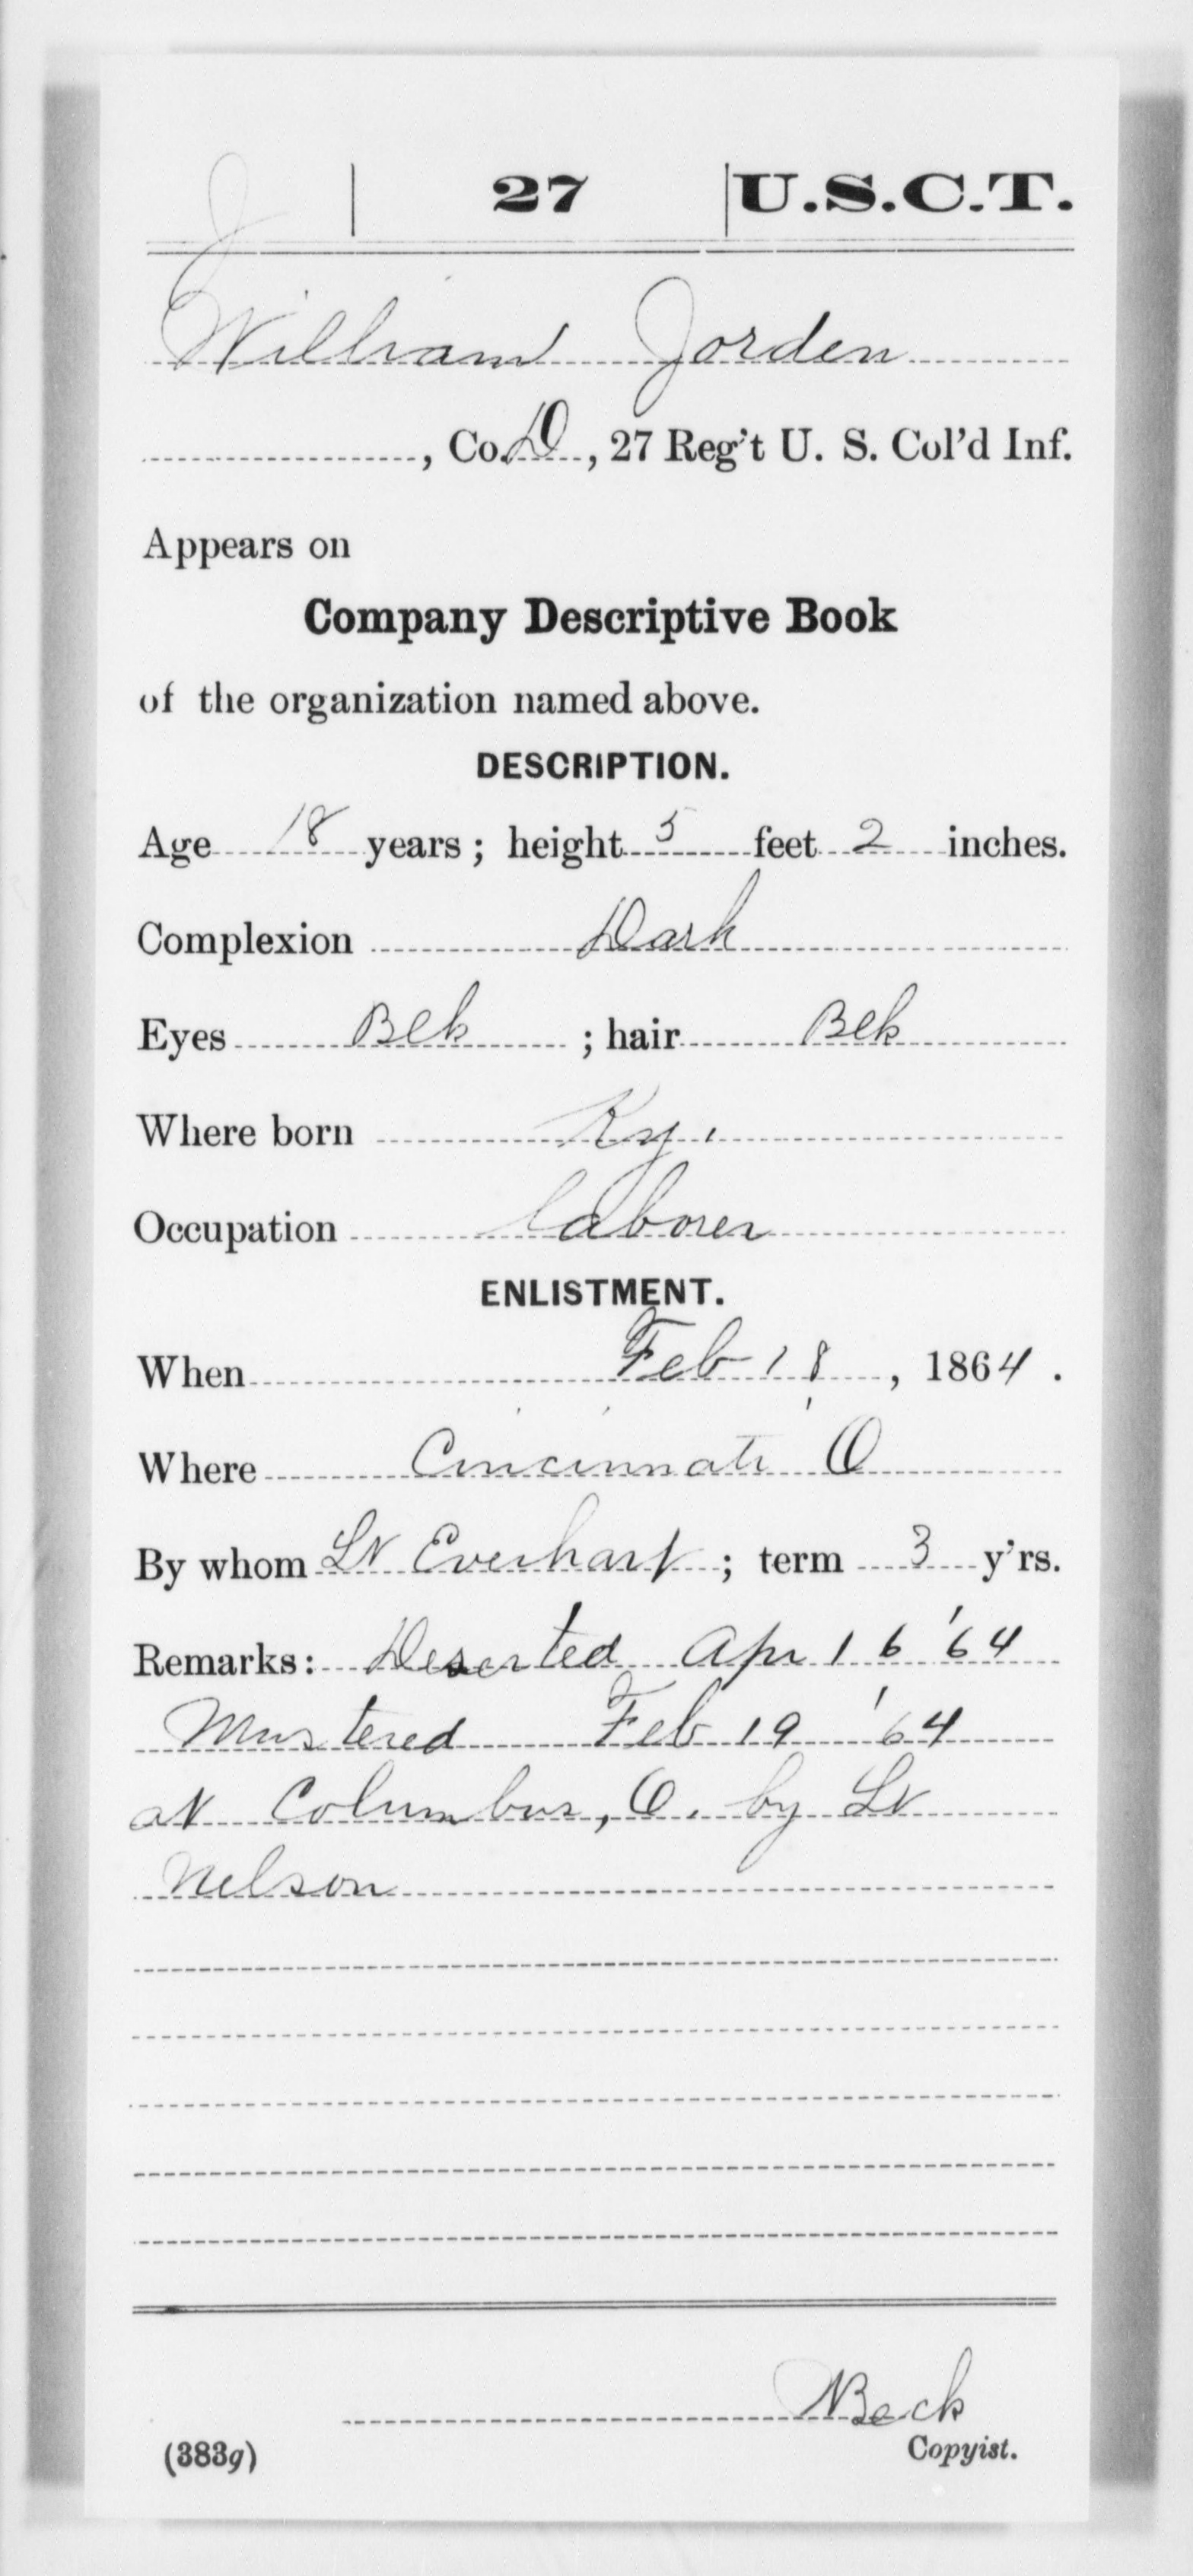 J | 27 | U.S.C.T.
William Jorden
, Co. D, 27 Reg't U. S. Col'd Inf.
Appears on
Company Descriptive Book
of the organization named above.
DESCRIPTION.
Age 18 years; height 5 feet 2 inches.
Complexion Dark
Eyes Blk ; hair Blk
Where born Ky.
Occupation laborer
ENLISTMENT.
When Feb 18, 1864.
Where Cincinnati O
By whom Lt Everhart; term 3 y'rs.
Remarks: Deserted Apr 16 '64
Mustered Feb 19 '64
at Columbus, O. by Lt
Nelson
Beck
(383g) Copyist.